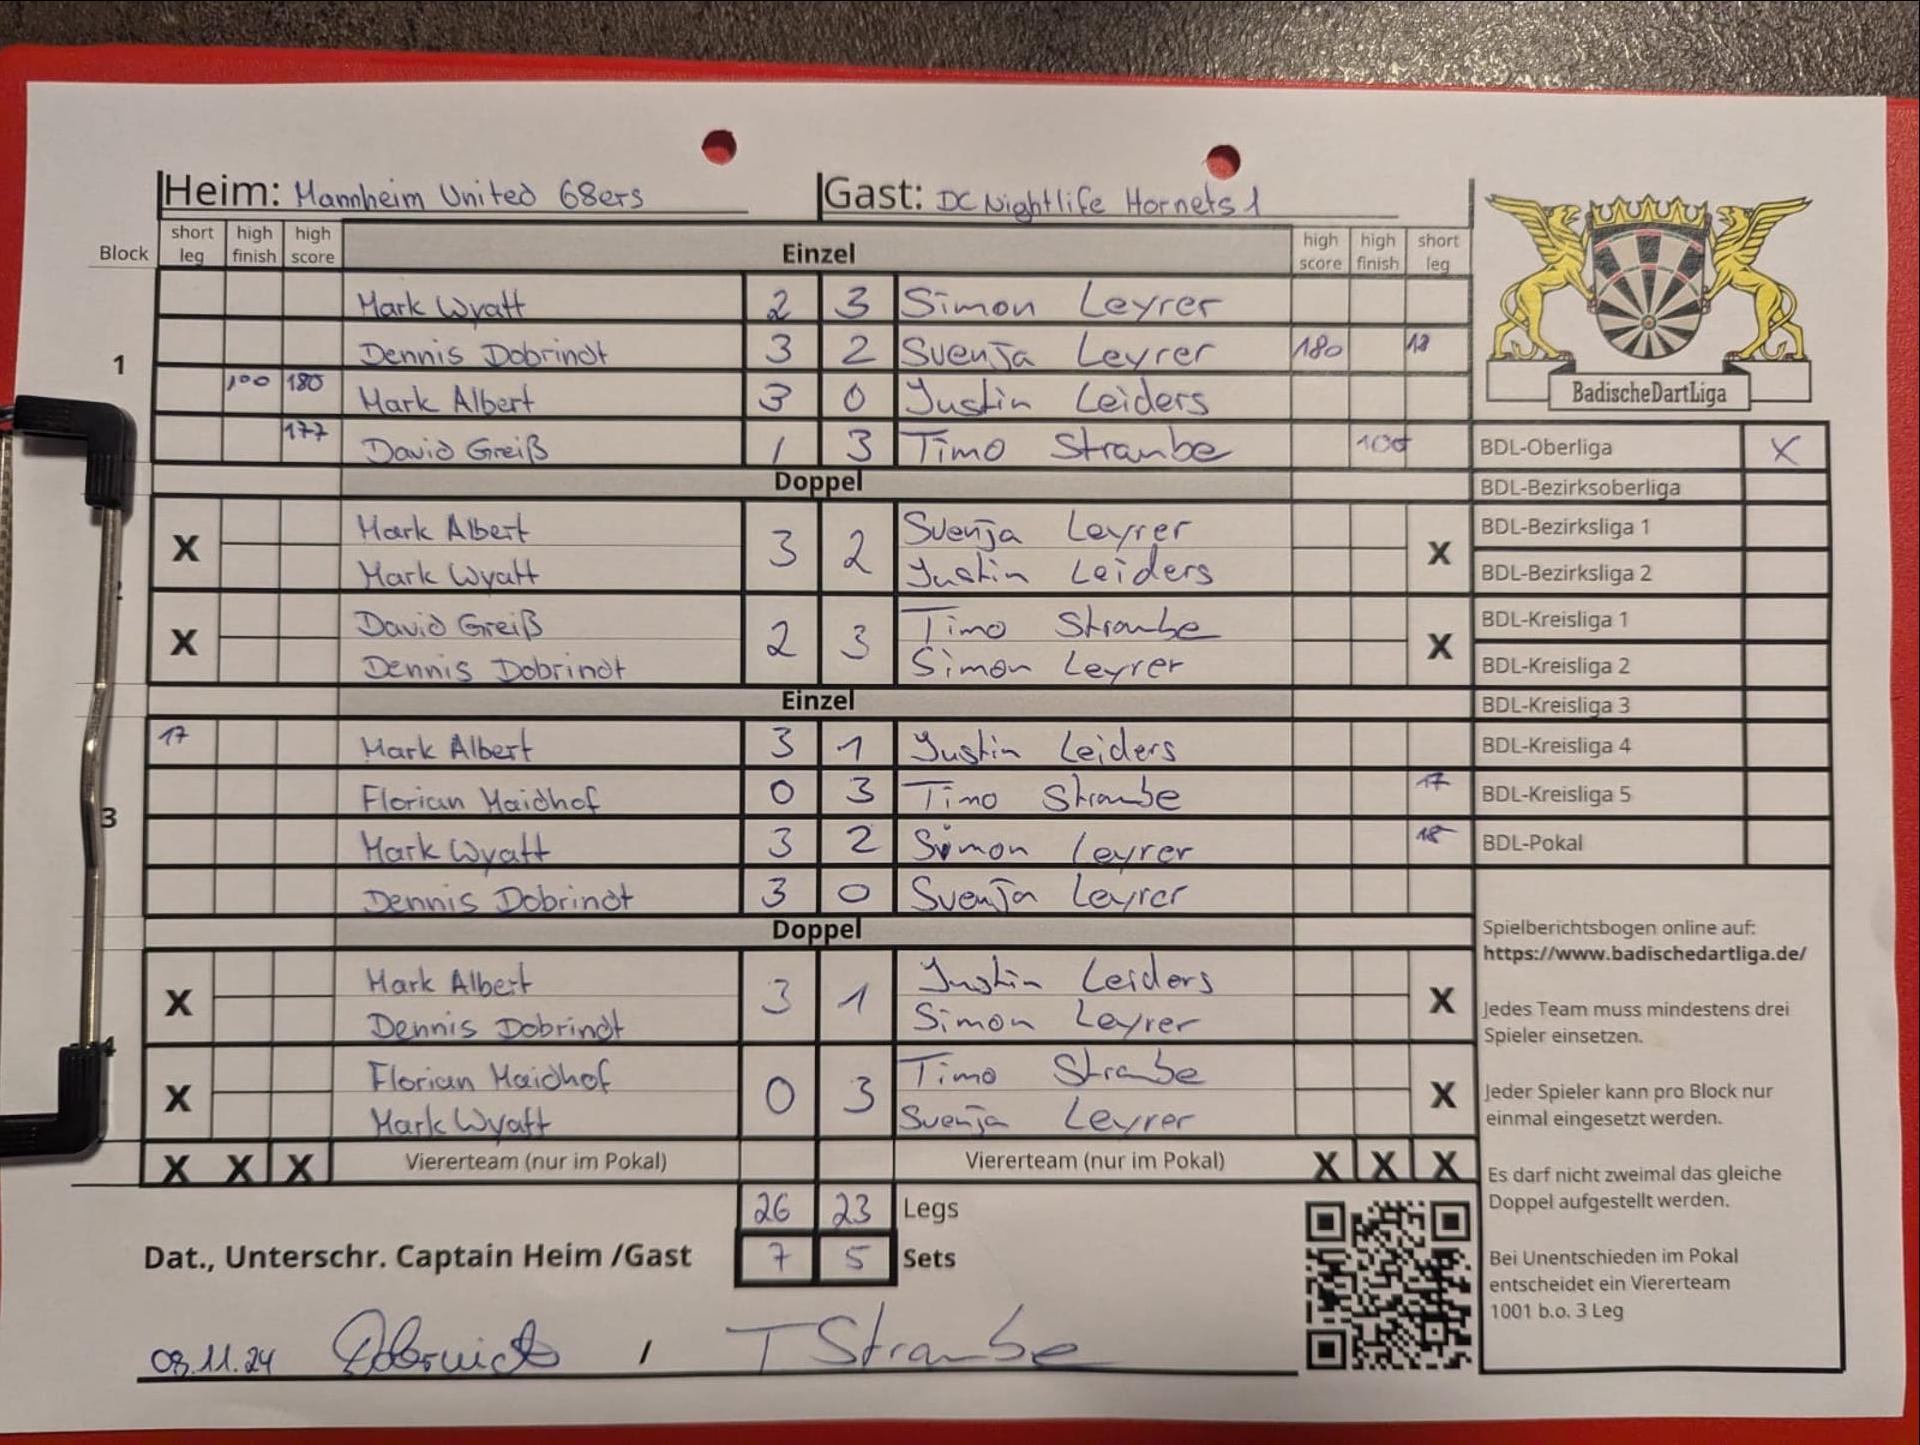 Heim: Mannheim United 68ers Gast: DC Nightlife Hornets 1
Block short leg high finish high score Einzel high score high finish short leg
Mark Wyatt 2 3 Simon Leyrer
1 Dennis Dobrindt 3 2 Svenja Leyrer 180 18
100 180 Mark Albert 3 0 Justin Leiders
177 David Greiß 1 3 Timo Straube 100
Doppel
X Mark Albert 3 2 Svenja Leyrer X
Mark Wyatt Justin Leiders
X David Greiß 2 3 Timo Straube X
Dennis Dobrindt Simon Leyrer
Einzel
17 Mark Albert 3 1 Justin Leiders
Florian Maidhof 0 3 Timo Straube 17
3 Mark Wyatt 3 2 Simon Leyrer 18
Dennis Dobrindt 3 0 Svenja Leyrer
Doppel
X Mark Albert 3 1 Justin Leiders X
Dennis Dobrindt Simon Leyrer
4
X Florian Maidhof 0 3 Timo Straube X
Mark Wyatt Svenja Leyrer
X X X Viererteam (nur im Pokal) Viererteam (nur im Pokal) X X X
26 23 Legs
Dat., Unterschr. Captain Heim /Gast 7 5 Sets
/ T Straube
BadischeDartLiga
BDL-Oberliga X
BDL-Bezirksoberliga
BDL-Bezirksliga 1
BDL-Bezirksliga 2
BDL-Kreisliga 1
BDL-Kreisliga 2
BDL-Kreisliga 3
BDL-Kreisliga 4
BDL-Kreisliga 5
BDL-Pokal
Spielberichtsbogen online auf:
https://www.badischedartliga.de/
Jedes Team muss mindestens drei
Spieler einsetzen.
Jeder Spieler kann pro Block nur
einmal eingesetzt werden.
Es darf nicht zweimal das gleiche
Doppel aufgestellt werden.
Bei Unentschieden im Pokal
entscheidet ein Viererteam
1001 b.o. 3 Leg